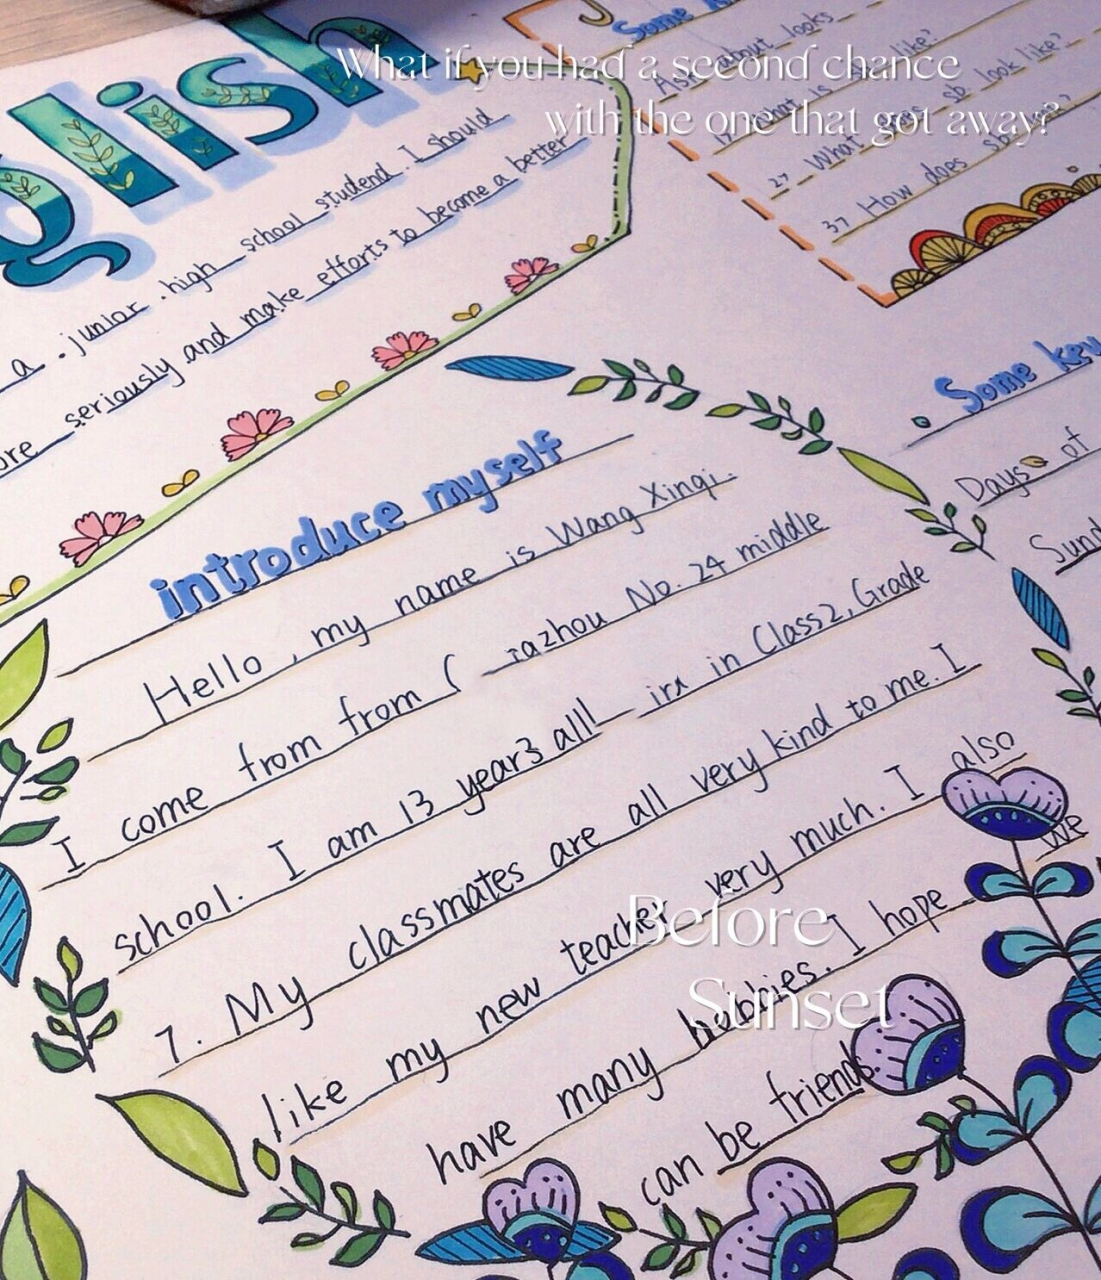 glish
What if you had a second chance
with the one that got away?
a junior high school studend. I should
ore seriously and make efforts to become a better
Some
Ask about looks
What is like?
27 What does sb. look like?
37 How does sb
introduce myself
Hello, my name is Wang Xinqi.
I come from from zhou No. 24 middle
school. I am 13 years in Class2, Grade
7. My classmates are all very kind to me. I
like my new teacher very much. I also
have many hobbies. I hope we
can be friends
Before
Sunset
Some key
Days of
Sund